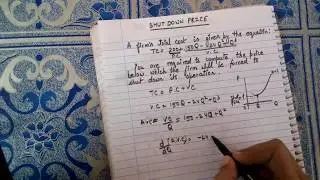 SHUT DOWN PRICE
A firm's total cost is given by the equation:
TC = 200 + 150Q - 24Q² + Q³
You are required to compute the price
below which the firm will be forced to
shut down its operation.
TC = F.C + V.C
V.C = 150Q - 24Q² + Q³
AVC = VC/Q = 150 - 24Q + Q²
d/dQ (A.V.C) = -24